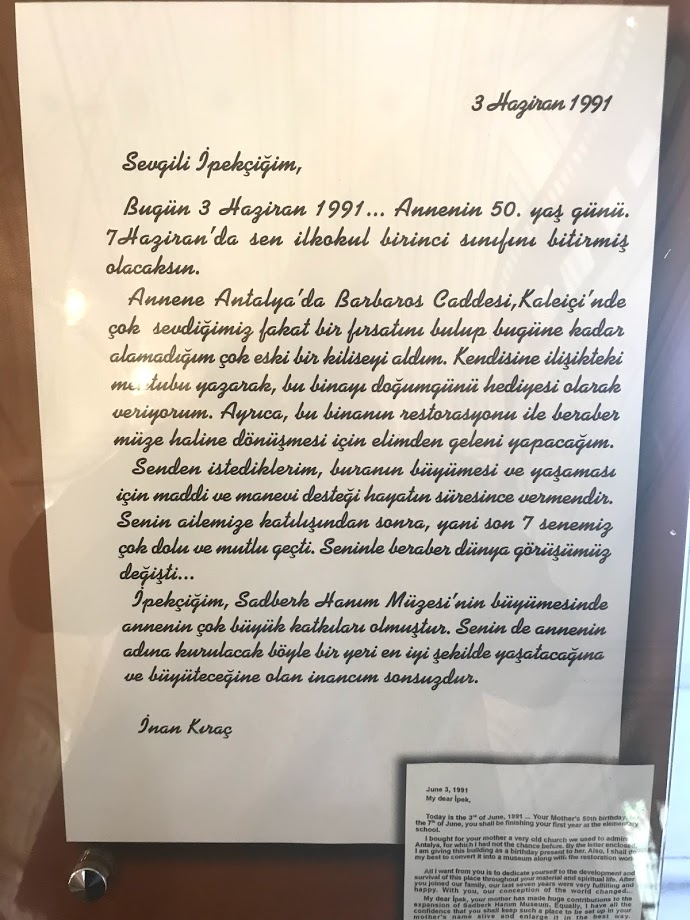 3 Haziran 1991
Sevgili İpekçiğim,
Bugün 3 Haziran 1991... Annenin 50. yaş günü.
7Haziran'da sen ilkokul birinci sınıfını bitirmiş
olacaksın.
Annene Antalya'da Barbaros Caddesi,Kaleiçi'nde
çok sevdiğimiz fakat bir fırsatını bulup bugüne kadar
alamadığım çok eski bir kiliseyi aldım. Kendisine ilişikteki
mektubu yazarak, bu binayı doğumgünü hediyesi olarak
veriyorum. Ayrıca, bu binanın restorasyonu ile beraber
müze haline dönüşmesi için elimden geleni yapacağım.
Senden istediklerim, buranın büyümesi ve yaşaması
için maddi ve manevi desteği hayatın süresince vermendir.
Senin ailemize katılışından sonra, yani son 7 senemiz
çok dolu ve mutlu geçti. Seninle beraber dünya görüşümüz
değişti...
İpekçiğim, Sadberk Hanım Müzesi'nin büyümesinde
annenin çok büyük katkıları olmuştur. Senin de annenin
adına kurulacak böyle bir yeri en iyi şekilde yaşatacağına
ve büyüteceğine olan inancım sonsuzdur.
İnan Kıraç
June 3, 1991
My dear İpek,
Today is the 3rd of June, 1991 ... Your Mother's 50th birthday,
the 7th of June, you shall be finishing your first year at the elementary
school.
I bought for your mother a very old church we used to admire
Antalya, for which I had not the chance before. By the letter enclosed,
I am giving this building as a birthday present to her. Also, I shall do
my best to convert it into a museum along with the restoration work
All I want from you is to dedicate yourself to the development and
survival of this place throughout your material and spiritual life. After
you joined our family, our last seven years were very fulfilling and
happy. With you, our conception of the world changed...
My dear İpek, your mother has made huge contributions to the
expansion of Sadberk Hanım Museum. Equally, I have all the
confidence that you shall keep such a place to be set up in your
mother's name alive and enlarge it in the best